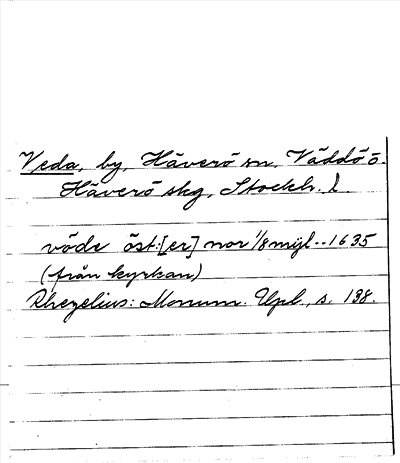 Veda, by, Häverö sn, Väddö ö.
Häverö skg, Stockh. l.
vöde öst:[er] nor 1/8 mÿl -- 1635
(från kyrkan)
Rhezelius: Monum. Upl., s. 138.